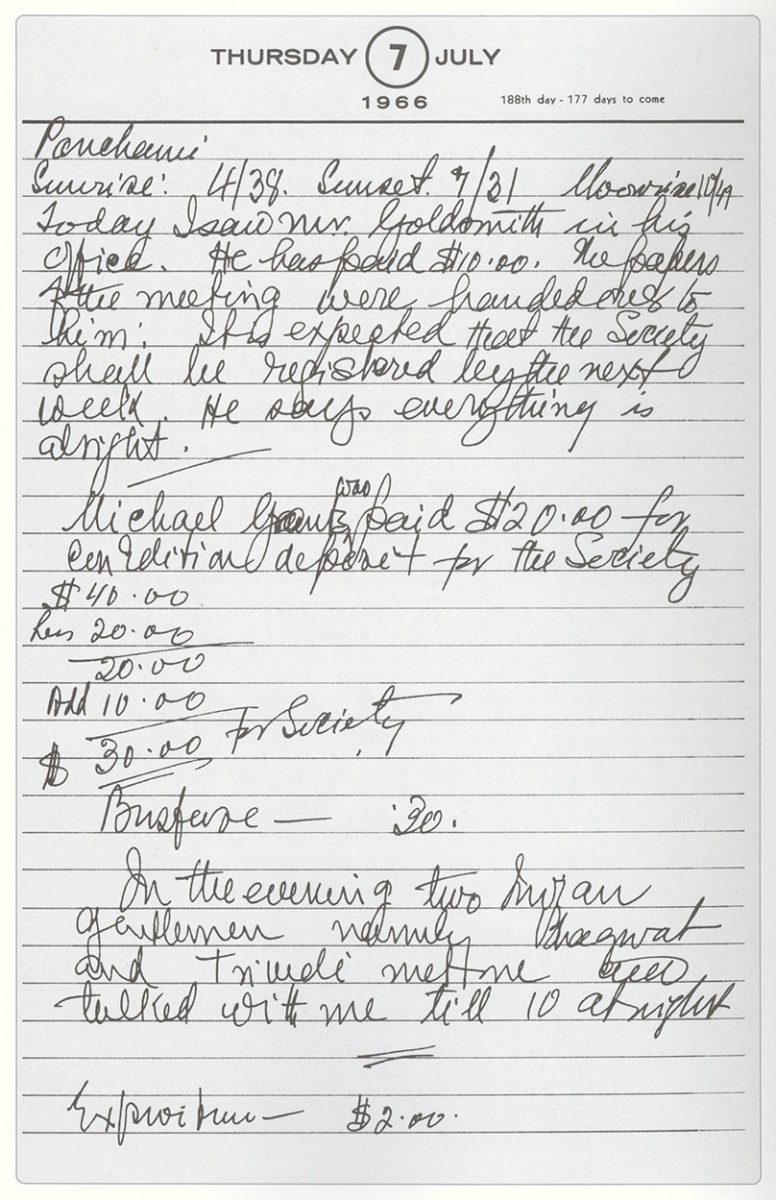 THURSDAY 7 JULY
1966 188th day - 177 days to come
Panchami
Sunrise: 4/38. Sunset. 7/31 Moonrise 10/49
Today I saw Mr. Goldsmith in his
office. He has paid $10.00. The papers
of the meeting were handed over to
him. It is expected that the Society
shall be registered by the next
week. He says everything is
alright.
was
Michael paid $20.00 for
deposit for the Society
$ 40.00
Less 20.00
20.00
Add 10.00
$ 30.00 for Society
Busfare — .30.
In the evening two Indian
gentlemen namely Bhagwat
and Trivedi met me and
talked with me till 10 at night
Expenditure — $2.00.